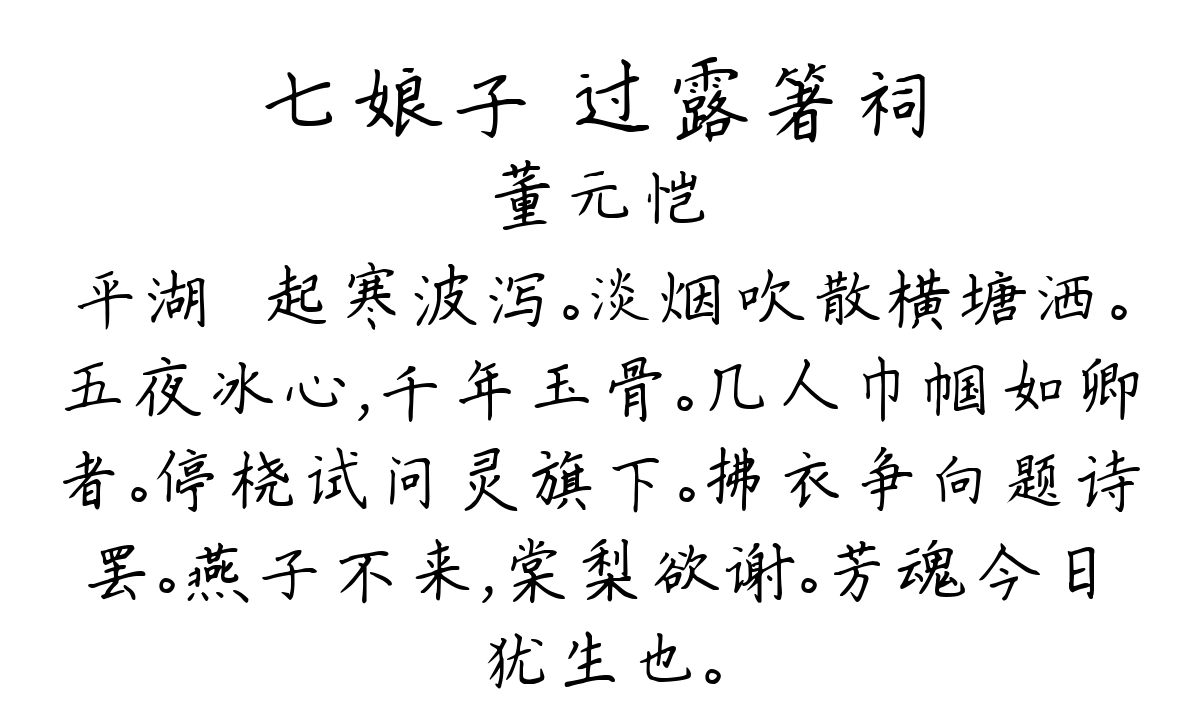 七娘子 过露箸祠
董元恺
平湖 起寒波泻。淡烟吹散横塘洒。
五夜冰心,千年玉骨。几人巾帼如卿
者。停桡试问灵旗下。拂衣争向题诗
罢。燕子不来,棠梨欲谢。芳魂今日
犹生也。